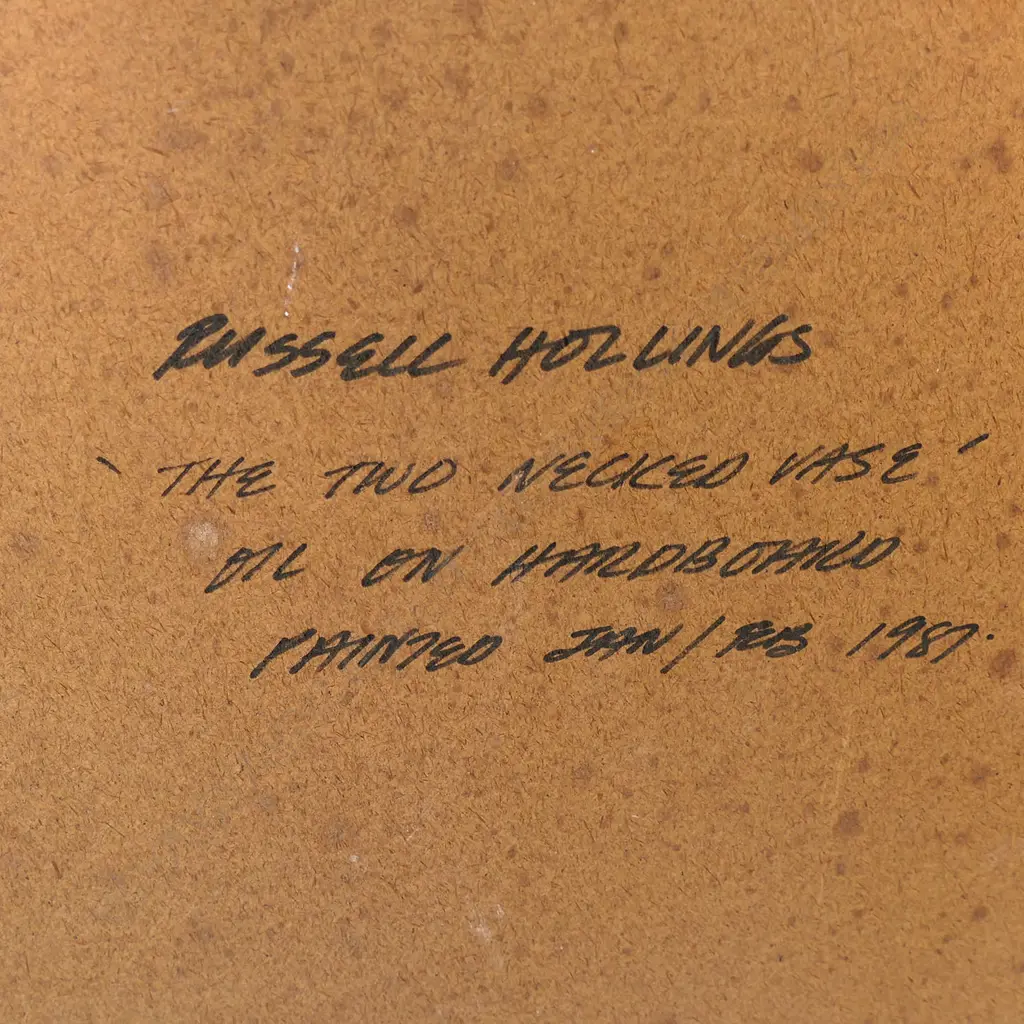 RUSSELL HOLLINGS
'THE TWO NECKED VASE'
OIL ON HARDBOARD
PAINTED JAN/FEB 1987.